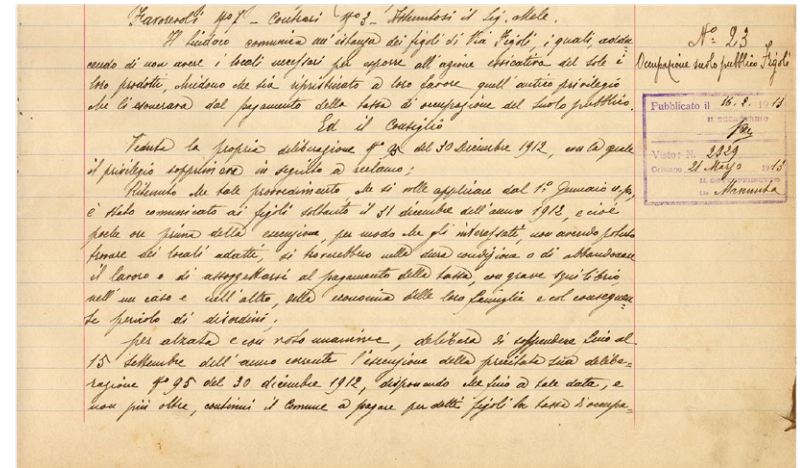 Favorevoli Nº 7 - Contrari Nº 3 - Astenutosi il Sig. Mele.
Il Sindaco comunica un'istanza dei figoli di Via Figoli, i quali, addu-
cendo di non avere i locali necessari per esporre all'azione essicativa del sole i
loro prodotti, chiedono che sia ripristinato a loro favore quell'antico privilegio
che li esonerava dal pagamento della tassa di occupazione del suolo pubblico.
Ed il Consiglio
Veduta la propria deliberazione Nº del 30 Dicembre 1912, con la quale
il privilegio sopprimeva in seguito a reclamo;
Ritenuto che tale provvedimento che si volle applicare dal 1º Gennaio u.s.,
è stato comunicato ai figoli soltanto il 31 dicembre dell'anno 1912, e cioè
poche ore prima della esecuzione, per modo che gli interessati, non avendo potuto
trovare dei locali adatti, si troverebbero nella dura condizione o di abbandonare
il lavoro o di assoggettarsi al pagamento della tassa, con grave squilibrio
nell'un caso e nell'altro, nella economia delle loro famiglie e col conseguen-
te pericolo di disordini;
per alzata e con voto unanime, delibera di sospendere fino al
15 settembre dell'anno corrente l'esecuzione della precitata sua delibe=
razione Nº 95 del 30 dicembre 1912, disponendo che fino a tale data, e
non più oltre, continui il Comune a pagare per detti figoli la tassa di occupa=
Nº 23
Occupazione suolo pubblico Figoli
Pubblicato il 16. 2. 1913
IL SEGRETARIO
Visto: N. 2929
Oristano 21 Marzo 1913
IL SOTTOPREFETTO